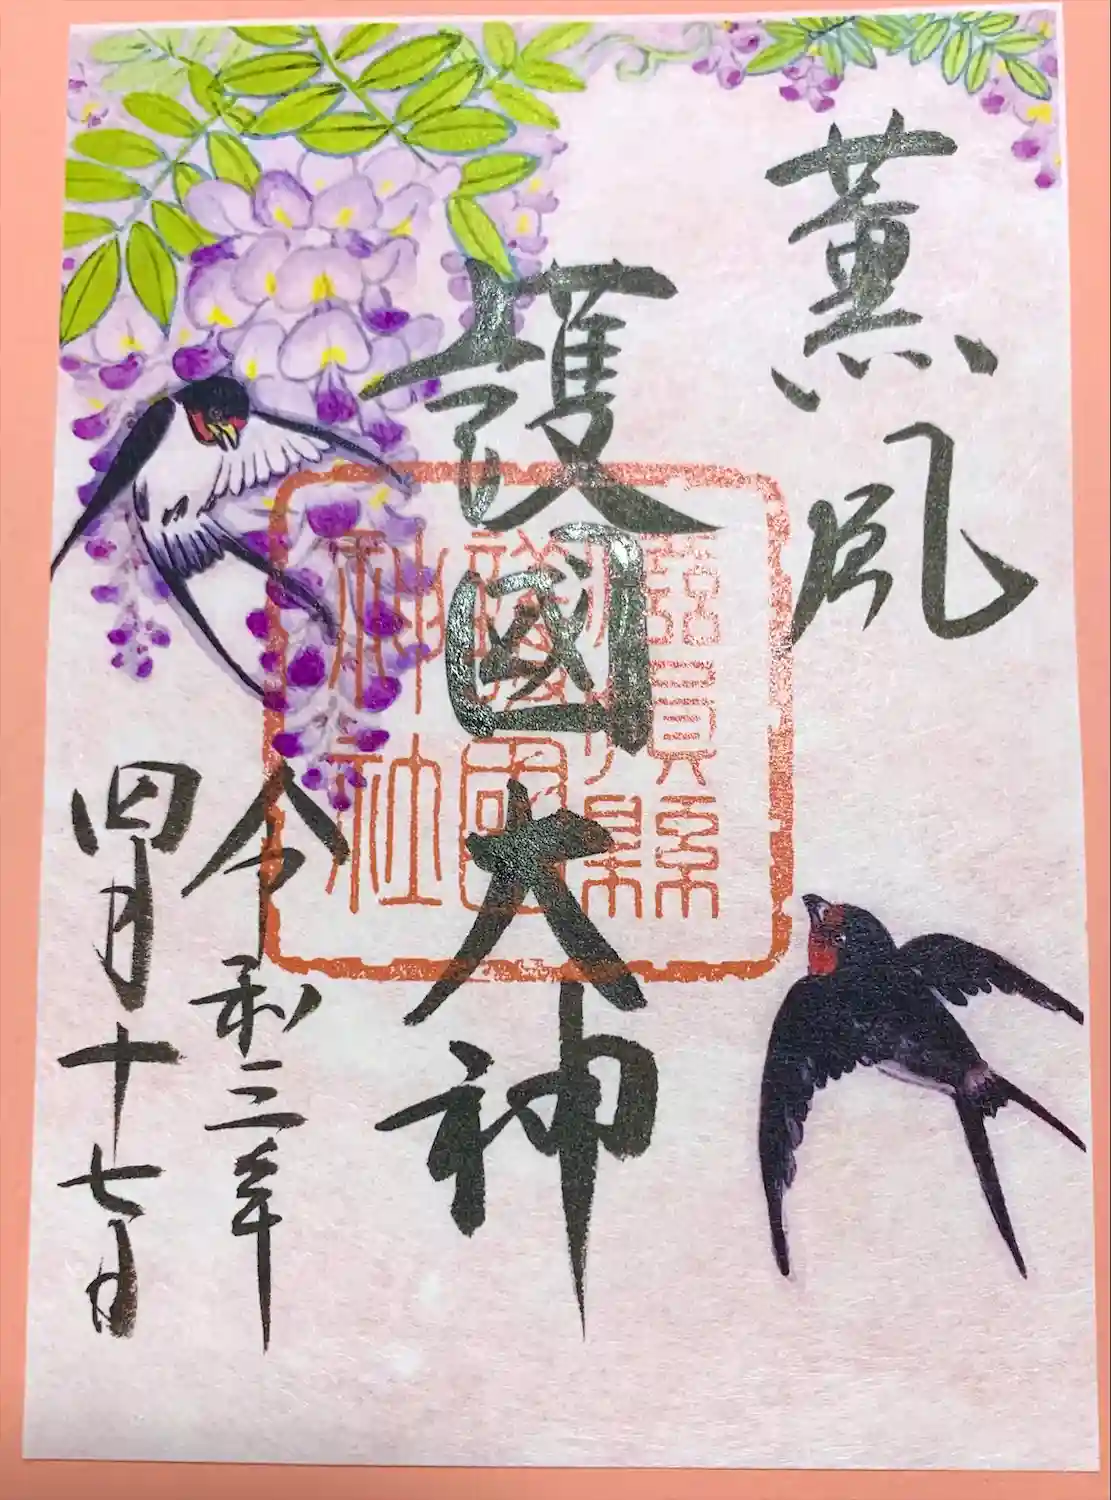 薫風
護國大神
滋賀縣
護國
神社
令和三年
四月十七日